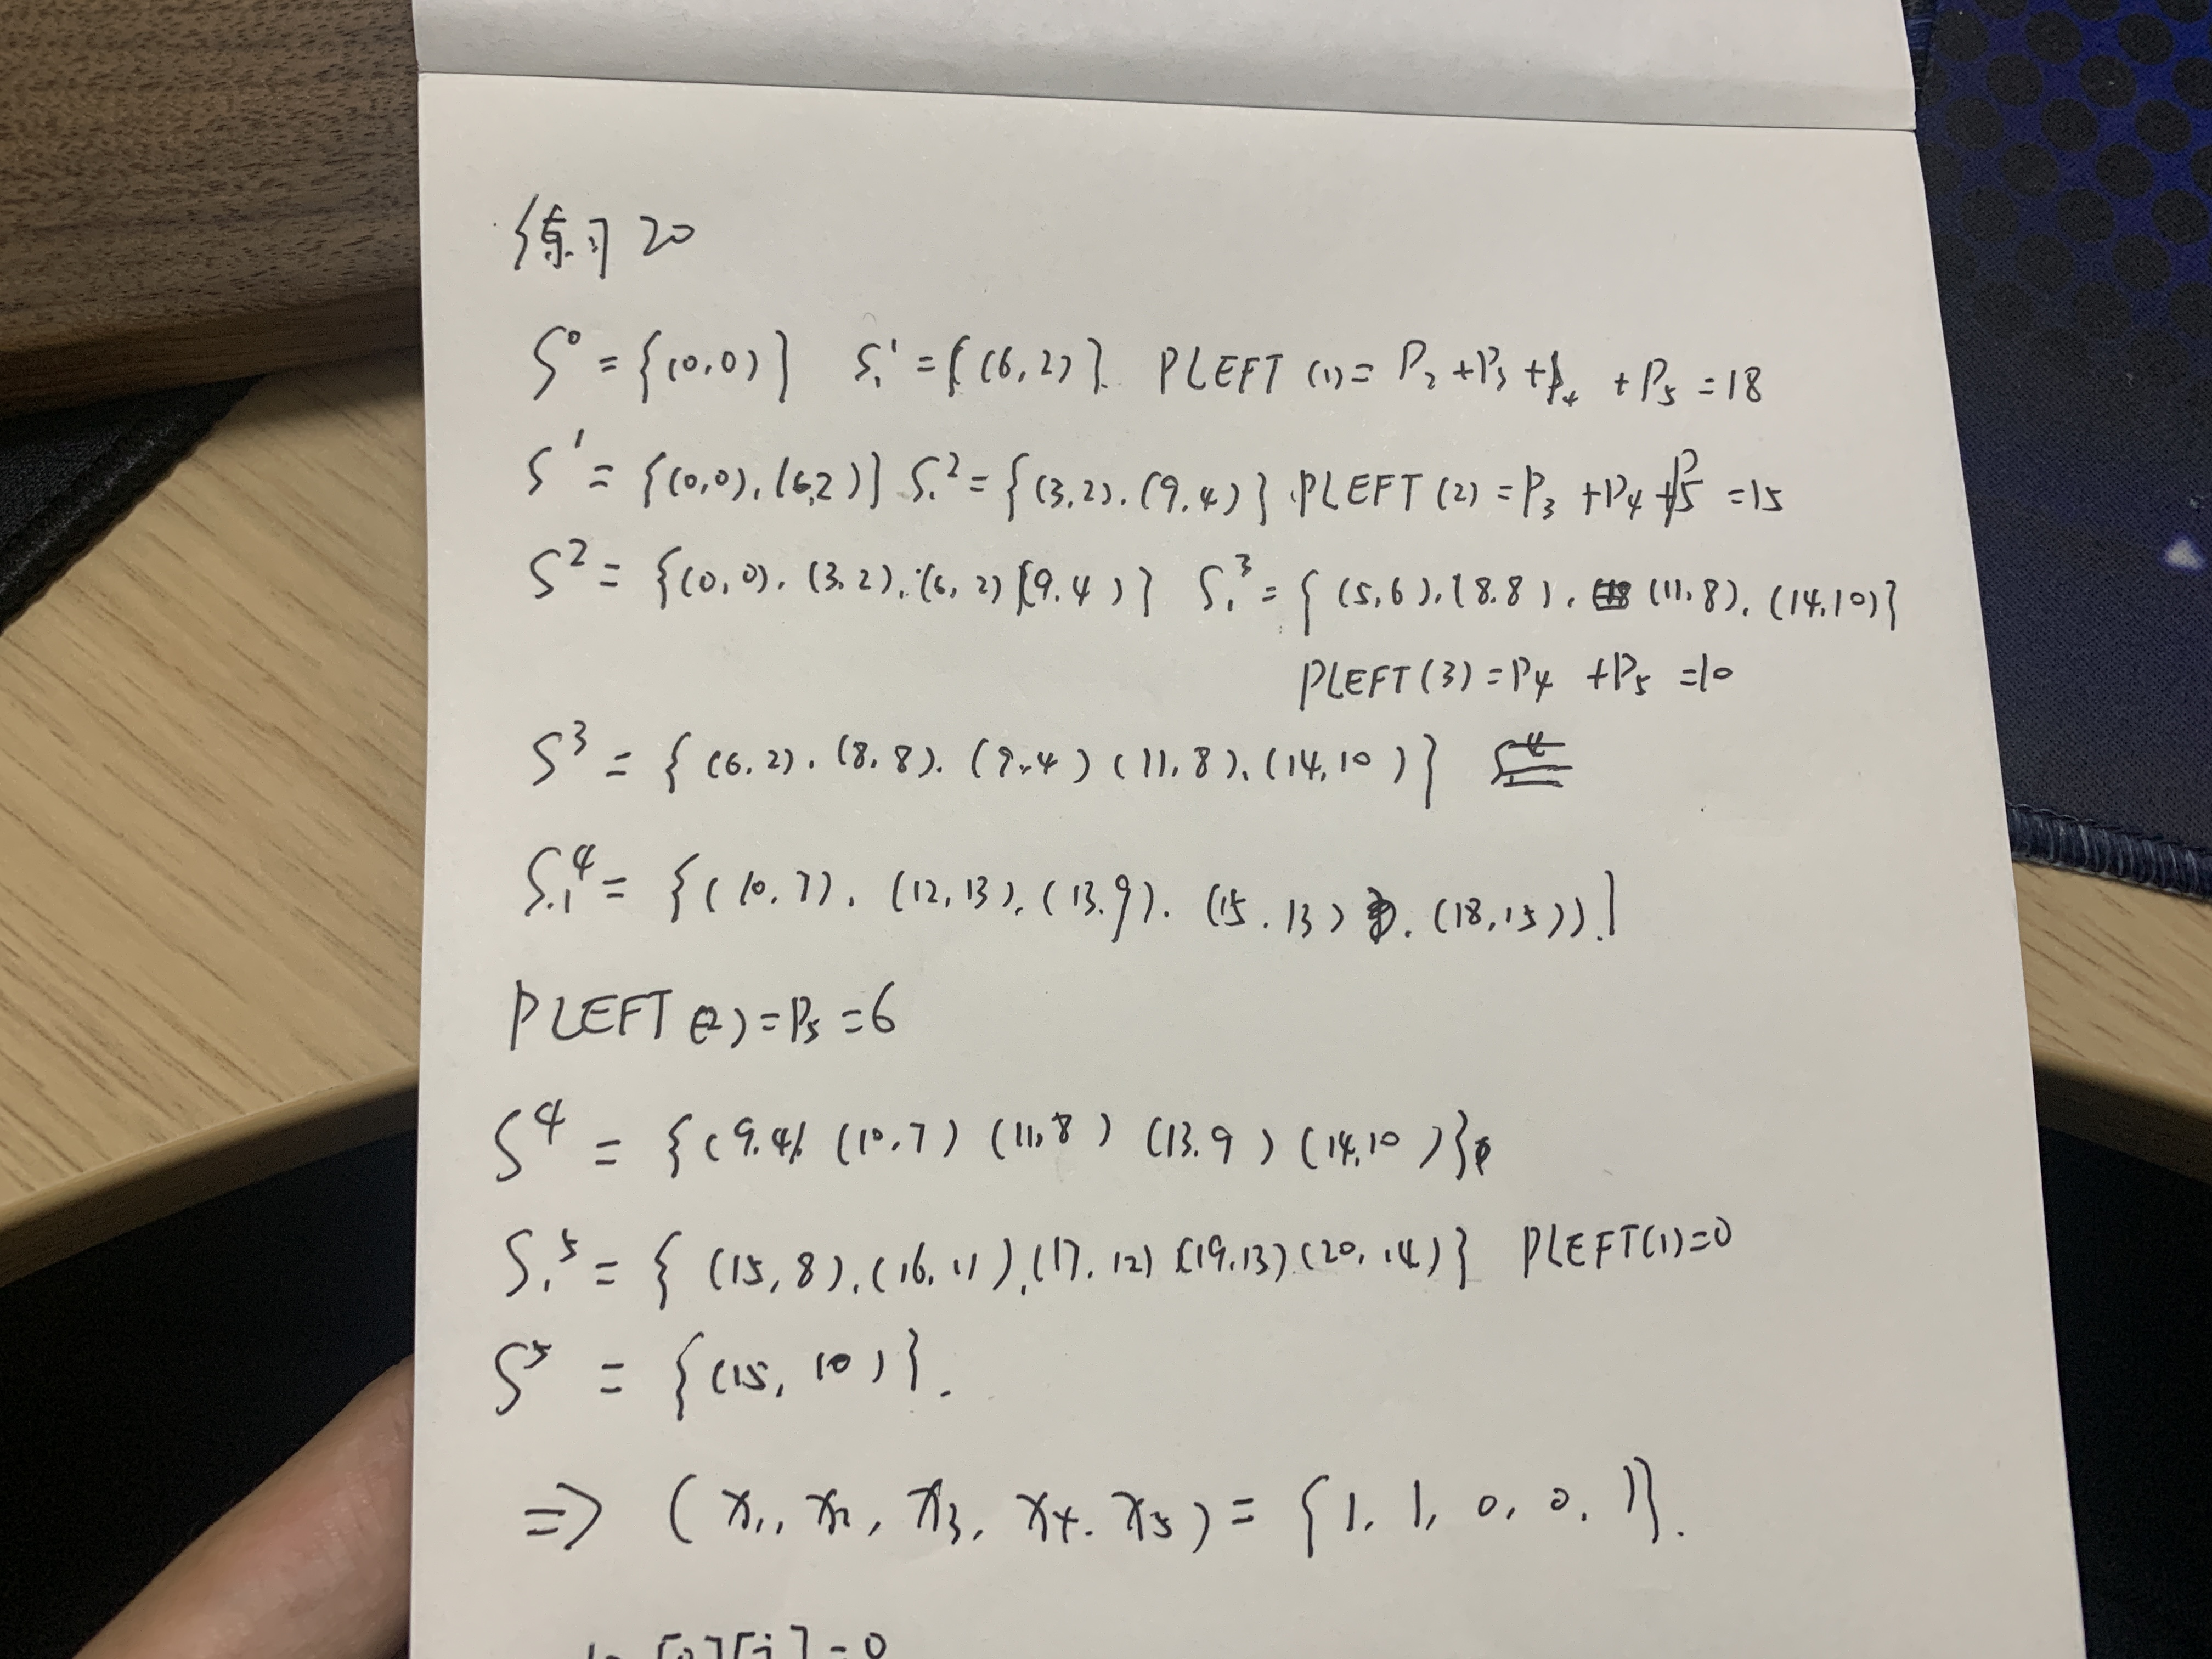 练习 20
S⁰ = {(0,0)} S₁¹ = {(6,2)}. PLEFT (1) = P₂ + P₃ + P₄ + P₅ = 18
S¹ = {(0,0), (6,2)} S₁² = {(3,2). (9,4)} PLEFT (2) = P₃ + P₄ + P5 = 15
S² = {(0,0). (3,2). (6,2) (9,4)} S₁³ = {(5,6). (8,8). (11,8). (14,10)}
PLEFT(3) = P₄ + P₅ = 10
S³ = {(6,2). (8,8). (9,4) (11,8). (14,10)}
S₁⁴ = {(10,7). (12,13). (13,9). (15,13) . (18,15)).}
PLEFT (2) = P₅ = 6
S⁴ = {(9,4). (10,7) (11,8) (13,9) (14,10)}
S₁⁵ = {(15,8). (16,11). (17,12) (19,13) (20,14)} PLEFT(1)=0
S⁵ = {(15,10)}.
⇒ (x₁, x₂, x₃, x₄. x₅) = {1, 1, 0, 0, 1}.